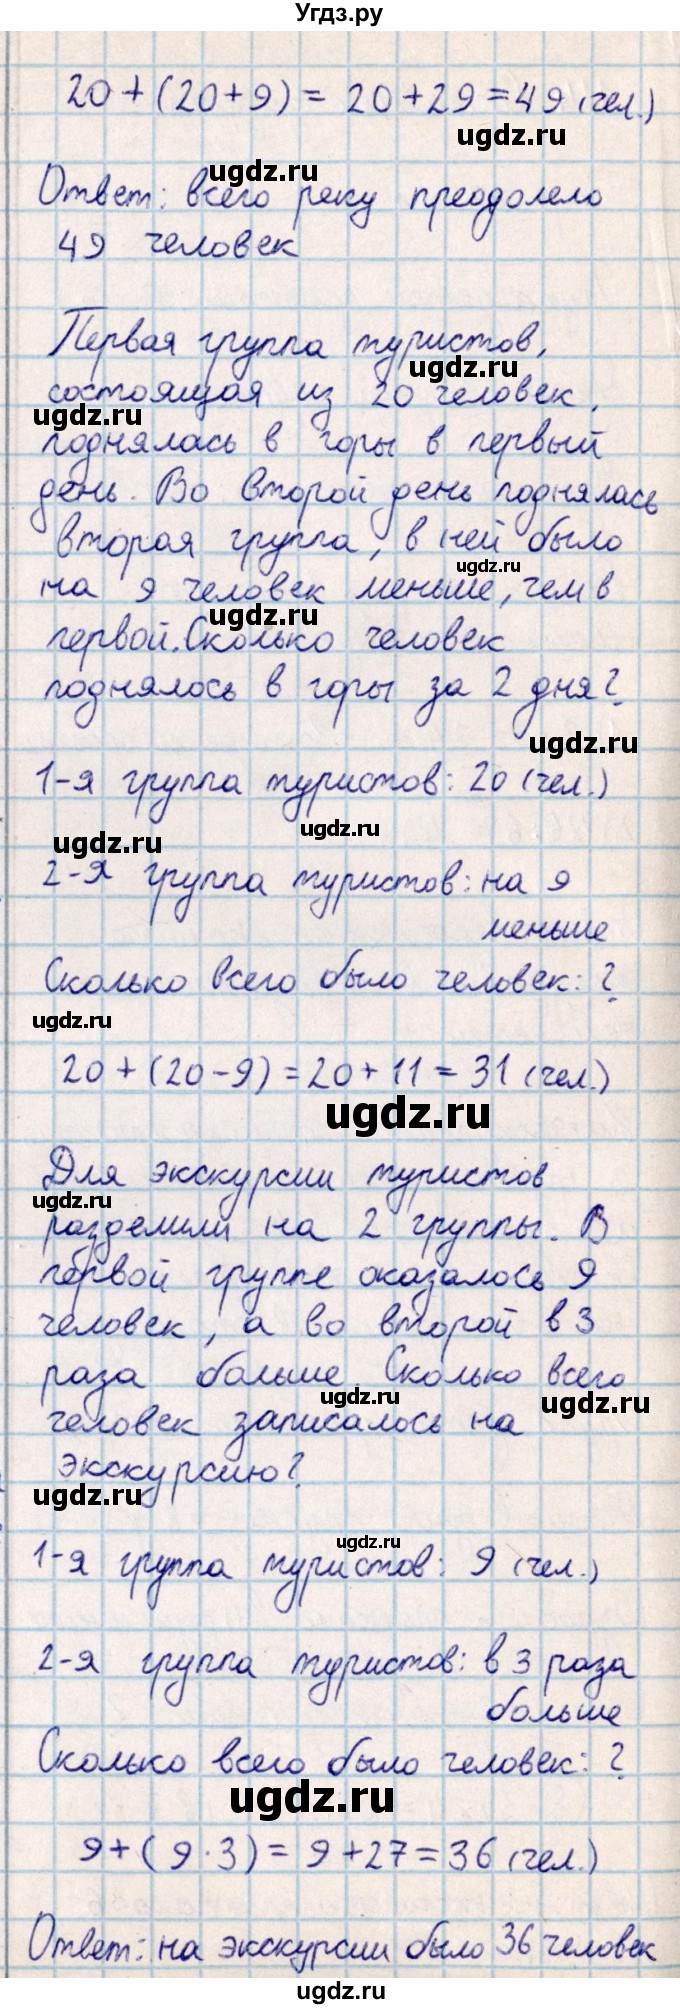 Угдз.ру
20 + (20 + 9) = 20 + 29 = 49 (чел.)
ugdz.ru
ugdz.ru
Ответ: всего реку преодолело
49 человек
Первая группа туристов,
ugdz.ru
состоящая из 20 человек,
ugdz.ru
поднялась в горы в первый
день. Во второй день поднялась
вторая группа, в ней было
ugdz.ru
на 9 человек меньше, чем в
ugdz.ru
первой. Сколько человек
поднялось в горы за 2 дня?
ugdz.ru
1-я группа туристов: 20 (чел.)
ugdz.ru
ugdz.ru
2-я группа туристов: на 9
меньше
Сколько всего было человек: ?
ugdz.ru
20 + (20 - 9) = 20 + 11 = 31 (чел.)
ugdz.ru
Для экскурсии туристов
ugdz.ru
разделили на 2 группы. В
первой группе оказалось 9
человек, а во второй в 3
раза больше. Сколько всего
ugdz.ru
ugdz.ru
человек записалось на
экскурсию?
ugdz.ru
ugdz.ru
1-я группа туристов: 9 (чел.)
2-я группа туристов: в 3 раза
больше
Сколько всего было человек: ?
ugdz.ru
9 + (9 · 3) = 9 + 27 = 36 (чел.)
Ответ: на экскурсии было 36 человек
ugdz.ru